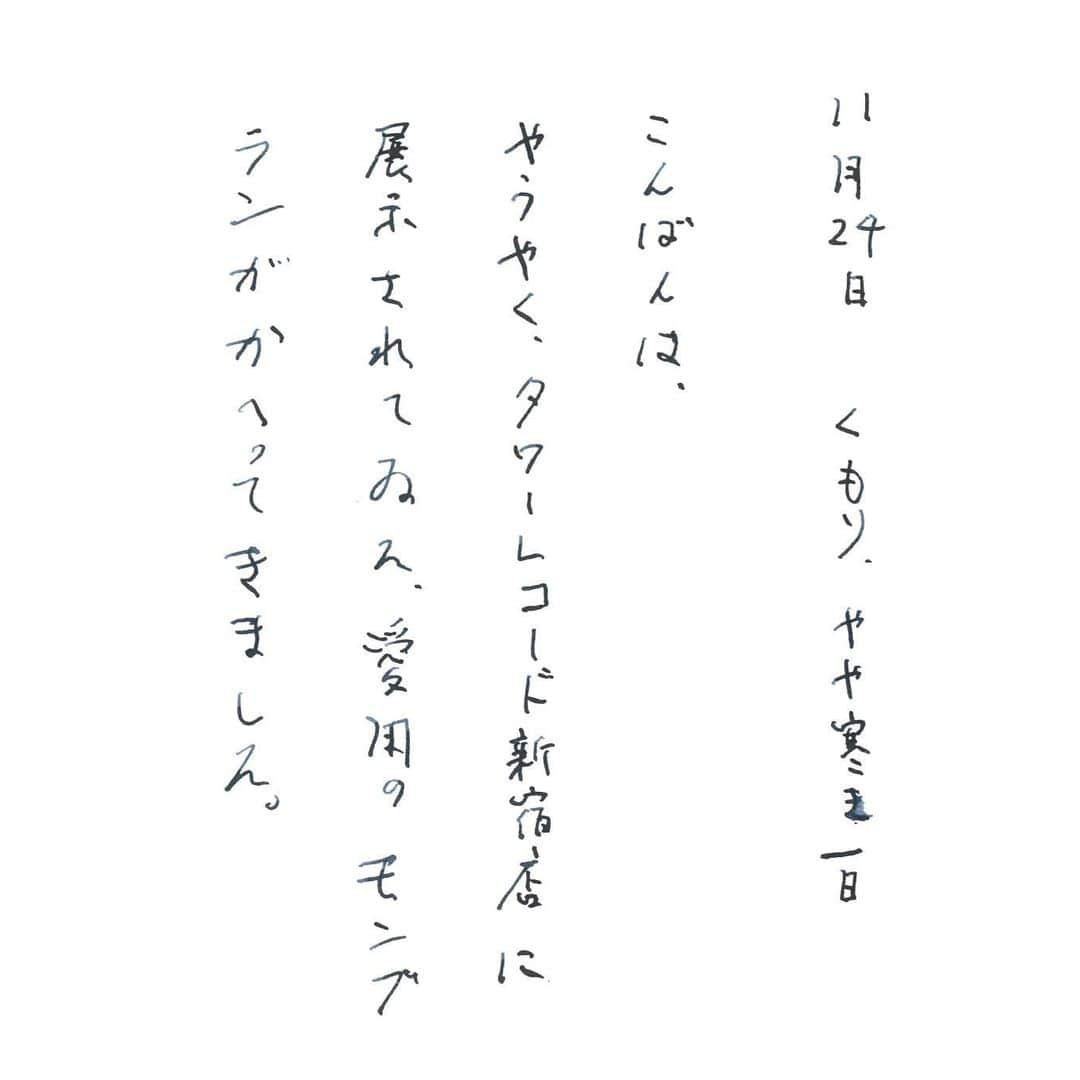 11月24日　くもり、やや寒き一日
こんばんは、
やうやく、タワーレコード新宿店に
展示されてゐた、愛用のモンブ
ランがかへってきました。